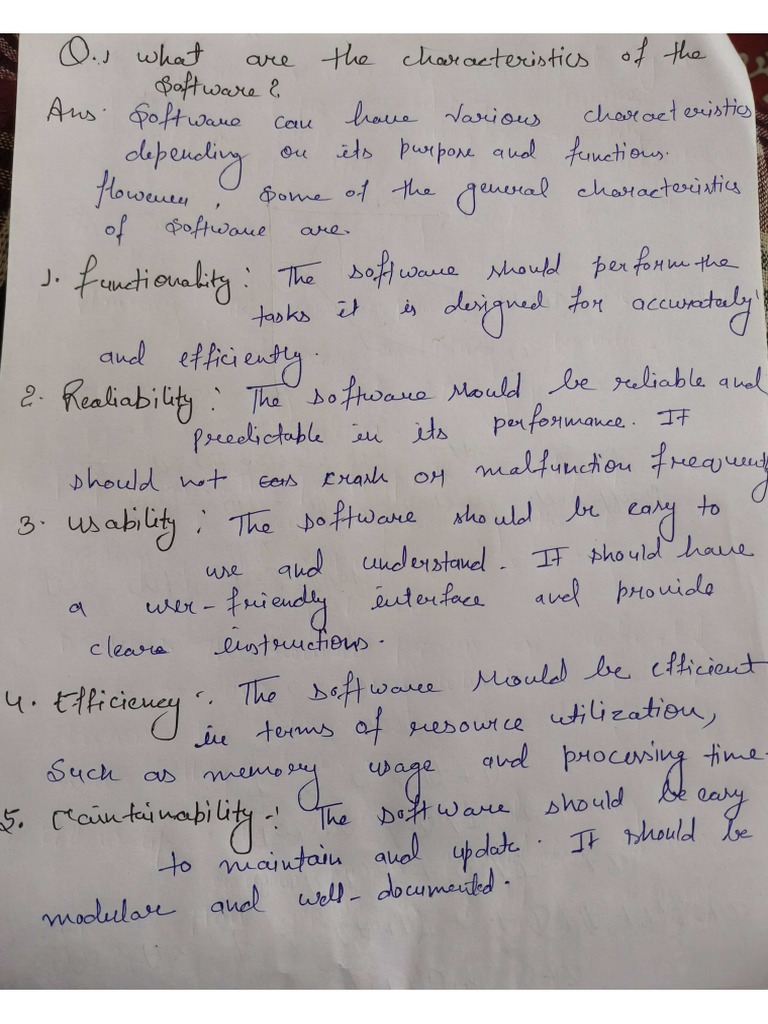 Q.1 what are the characteristics of the
Software?
Ans. Software can have various characteristics
depending on its purpose and functions.
However, some of the general characteristics
of software are.
1. Functionality: The software should perform the
tasks it is designed for accurately
and efficiently.
2. Realiability: The software should be reliable and
preedictable in its performance. It
should not crash or malfunction frequently
3. Usability: The software should be easy to
use and understand. It should have
a user-friendly interface and provide
cleare instructions.
4. Efficiency: The software should be efficient
in terms of resource utilization,
Such as memory usage and processing time.
5. Maintainability-: The software should be easy
to maintain and update. It should be
modular and well-documented.